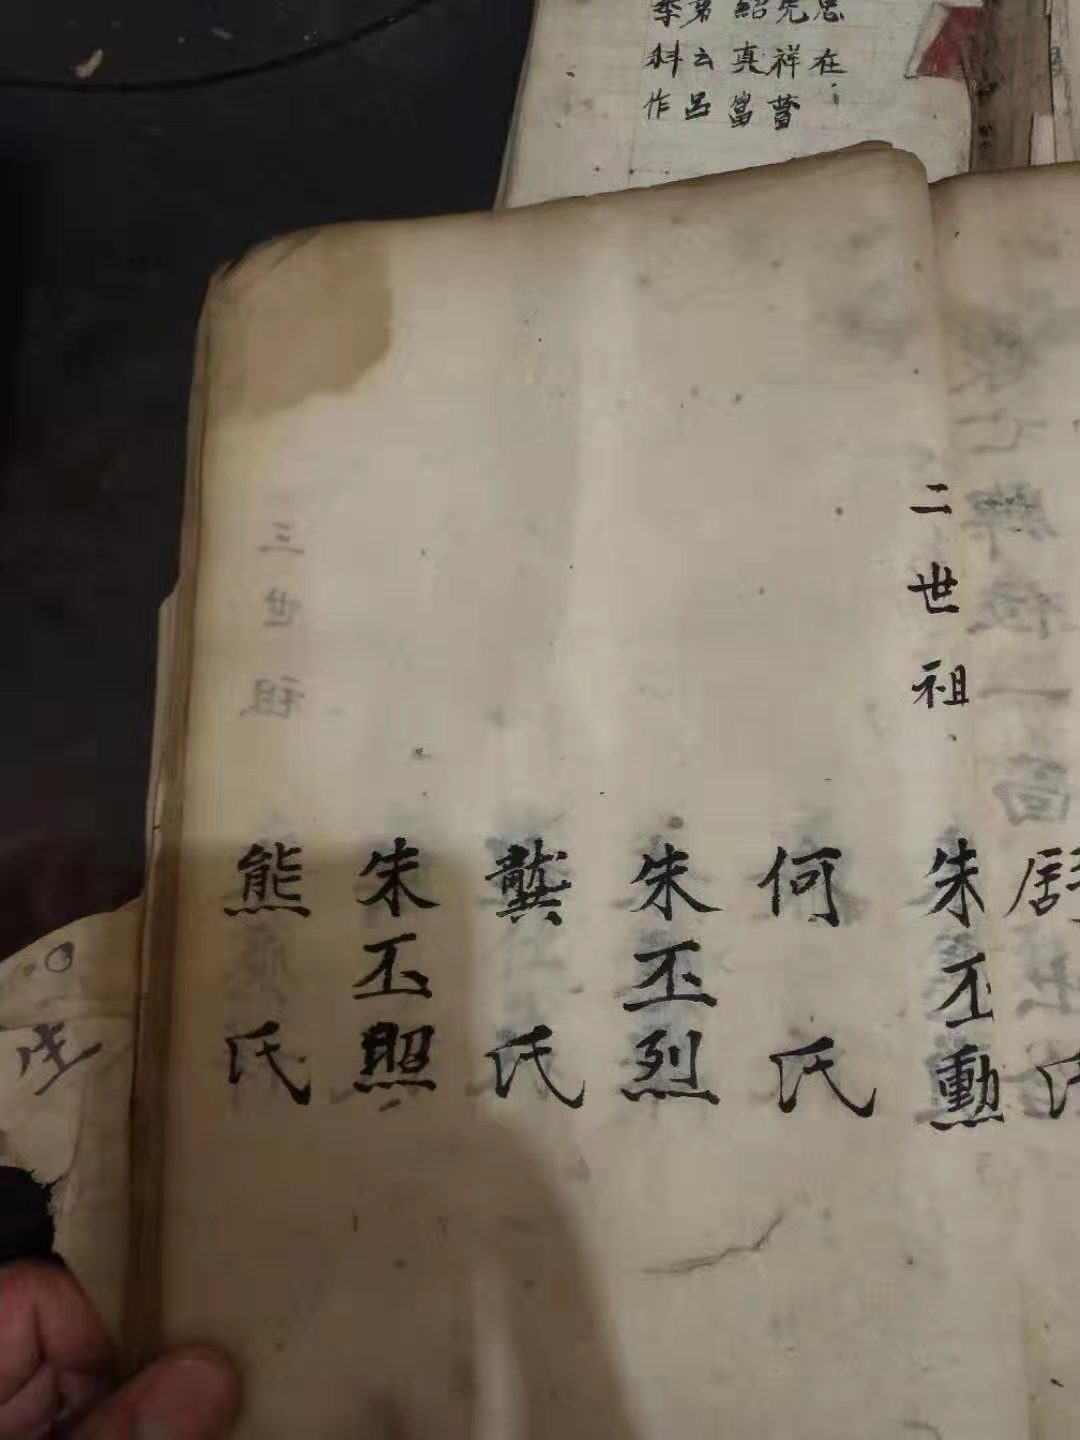 二世祖
朱丕勳
何氏
朱丕烈
龔氏
朱丕照
熊氏
三世祖
思在
先祥薈
紹真當
弟云呂
季科作
生